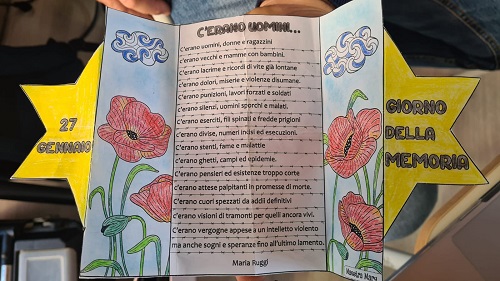 C'ERANO UOMINI...
27
GENNAIO
C'erano uomini, donne e ragazzini
C'erano vecchi e mamme con bambini.
C'erano lacrime e ricordi di vite già lontane
C'erano dolori, miserie e violenze disumane.
C'erano punizioni, lavori forzati e soldati
C'erano silenzi, uomini sporchi e malati.
C'erano eserciti, fili spinati e fredde prigioni
C'erano divise, numeri incisi ed esecuzioni.
C'erano stenti, fame e malattie
C'erano ghetti, campi ed epidemie.
C'erano pensieri ed esistenze troppo corte
C'erano attese palpitanti in promesse di morte.
C'erano cuori spezzati da addii definitivi
C'erano visioni di tramonti per quelli ancora vivi.
C'erano vergogne appese a un intelletto violento
ma anche sogni e speranze fino all'ultimo lamento.
Maria Ruggi
GIORNO
DELLA
MEMORIA